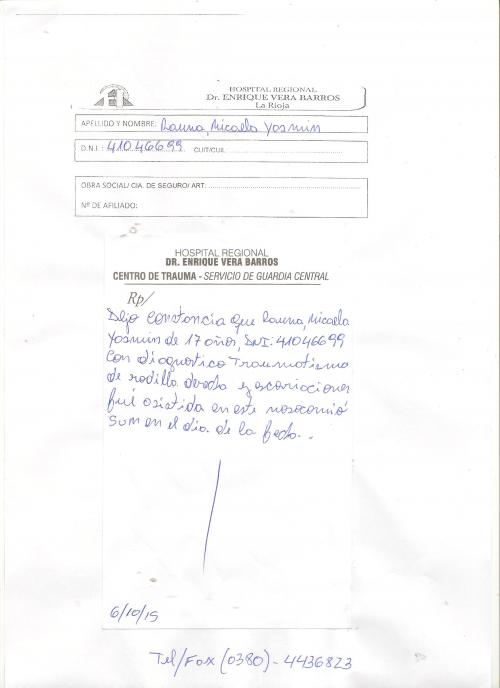 HOSPITAL REGIONAL
Dr. ENRIQUE VERA BARROS
La Rioja
APELLIDO Y NOMBRE: Launa, Micaela Yasmin
D.N.I.: 41046699 CUIT/CUIL:
OBRA SOCIAL/ CIA. DE SEGURO/ ART:
Nº DE AFILIADO:
HOSPITAL REGIONAL
DR. ENRIQUE VERA BARROS
CENTRO DE TRAUMA - SERVICIO DE GUARDIA CENTRAL
Rp/
Dejo constancia que Launa, Micaela
Yasmin de 17 años DNI: 41046699
con diagnostico Traumatismo
de rodilla derecha y escoriaciones
fué asistida en este nosocomió
en el dia de la fecha.
6/10/15
Tel/Fax (0380) - 4436823